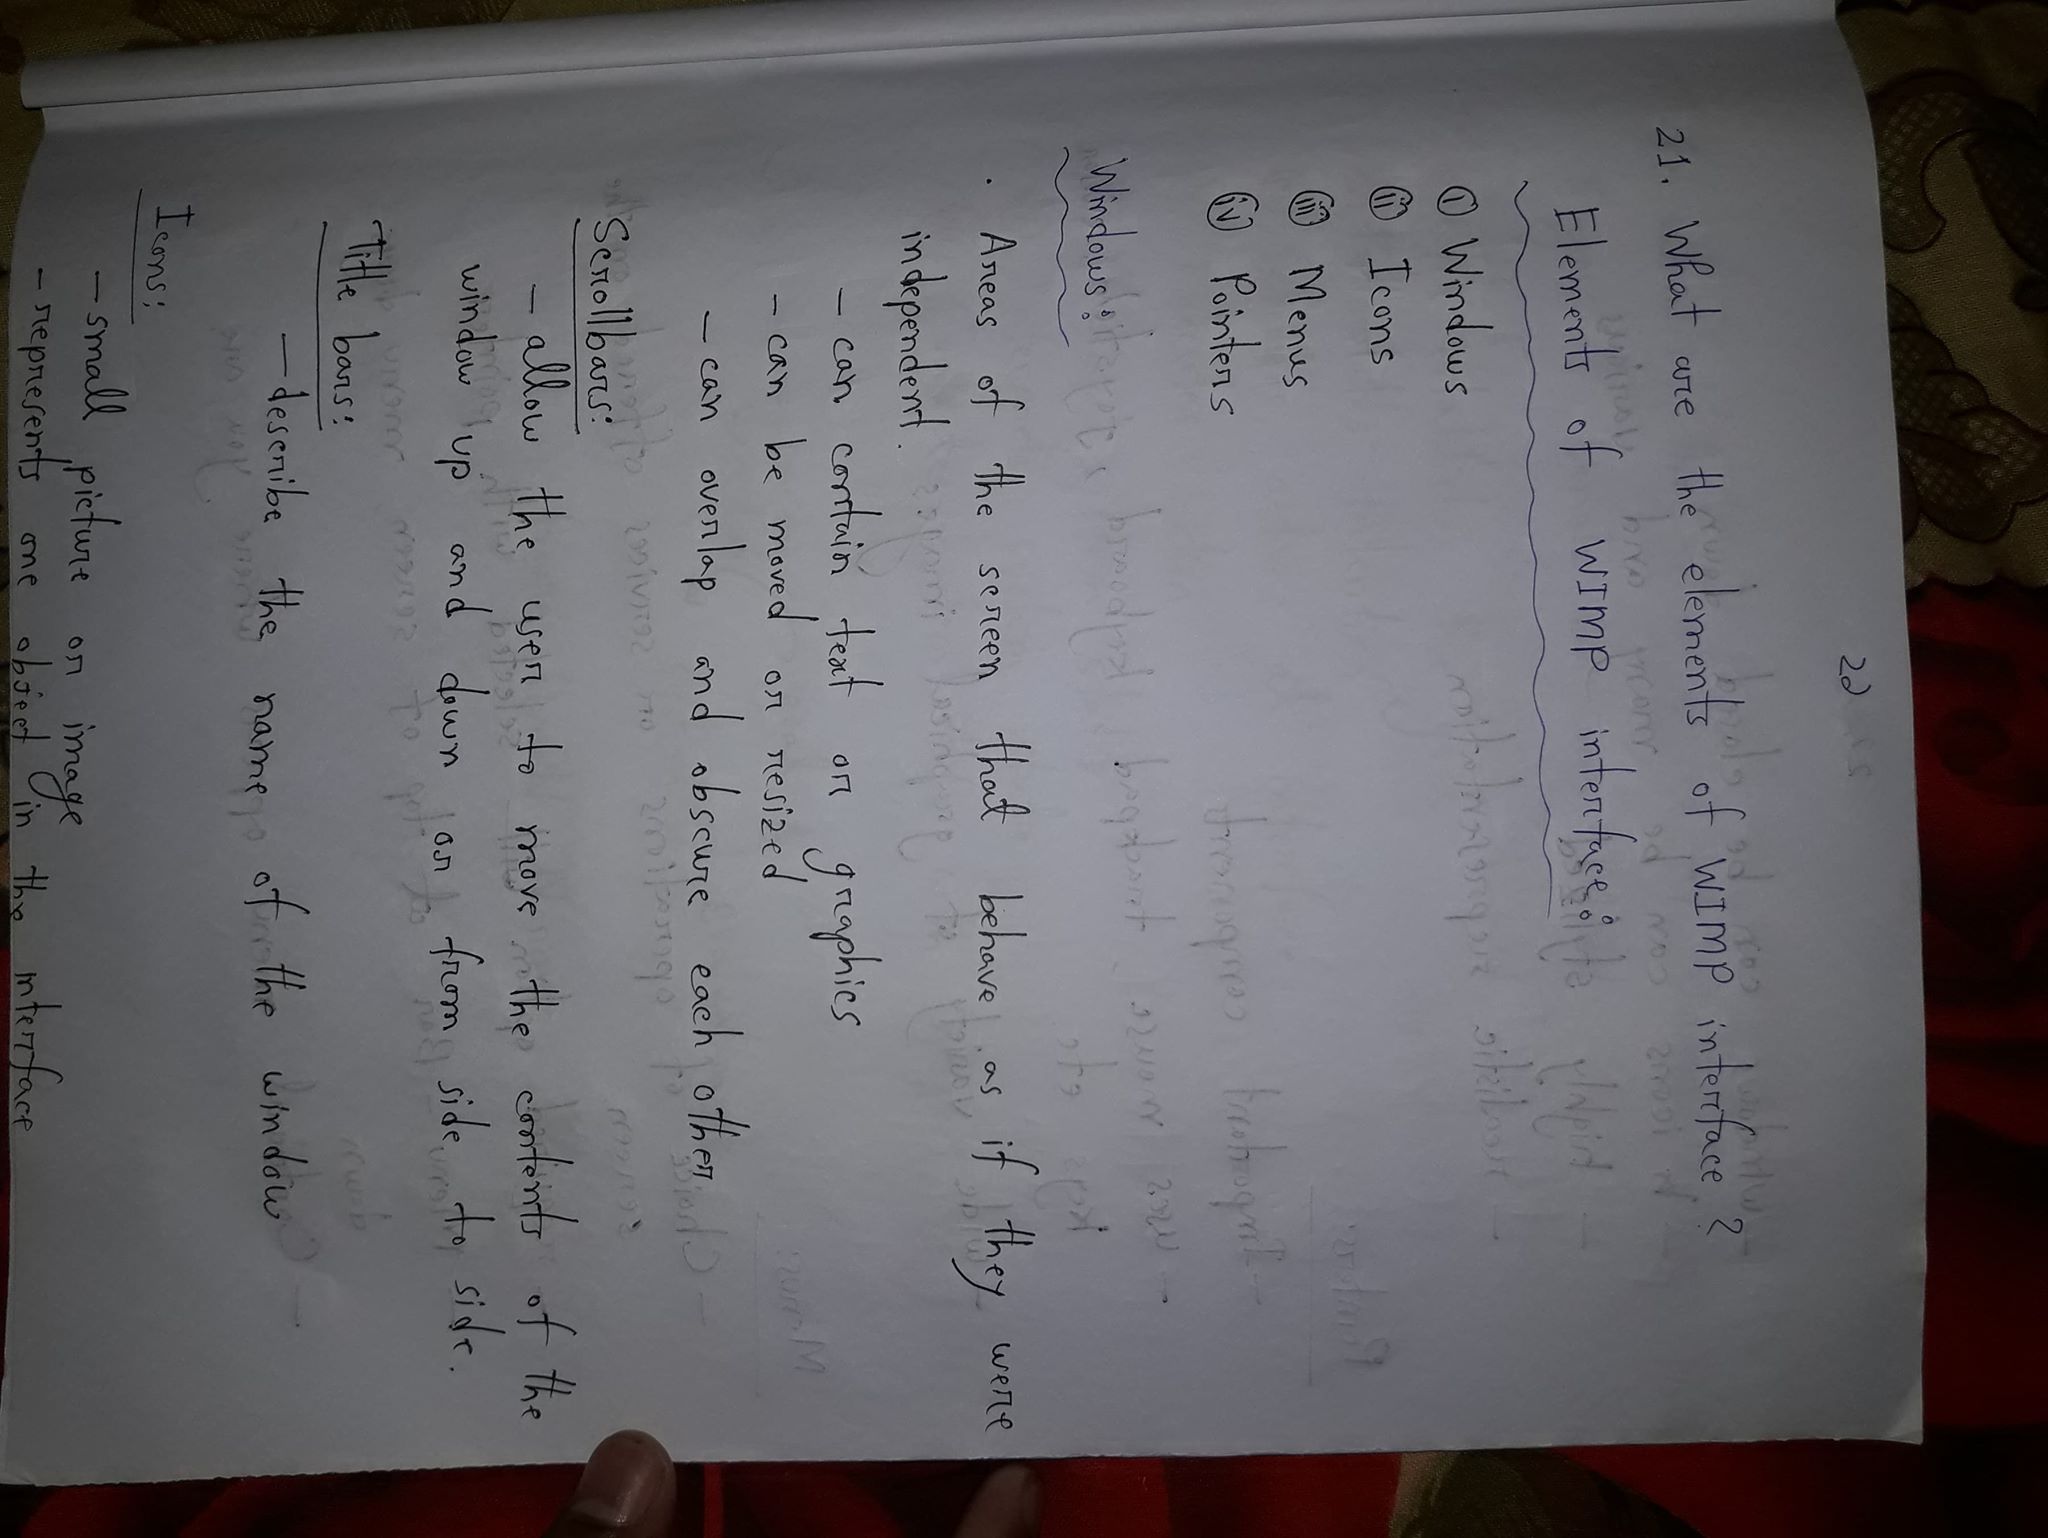 22
21. What are the elements of WIMP interface ?
Elements of WIMP interface:
i Windows
ii Icons
iii Menus
iv Pointers
Windows:
. Areas of the screen that behave as if they were
independent.
- can contain text or graphics
- can be moved or resized
- can overlap and obscure each other
Scrollbars:
- allow the user to move the contents of the
window up and down or from side to side.
Title bars:
- describe the name of the window
Icons:
- small picture or image
- represents one object in the interface